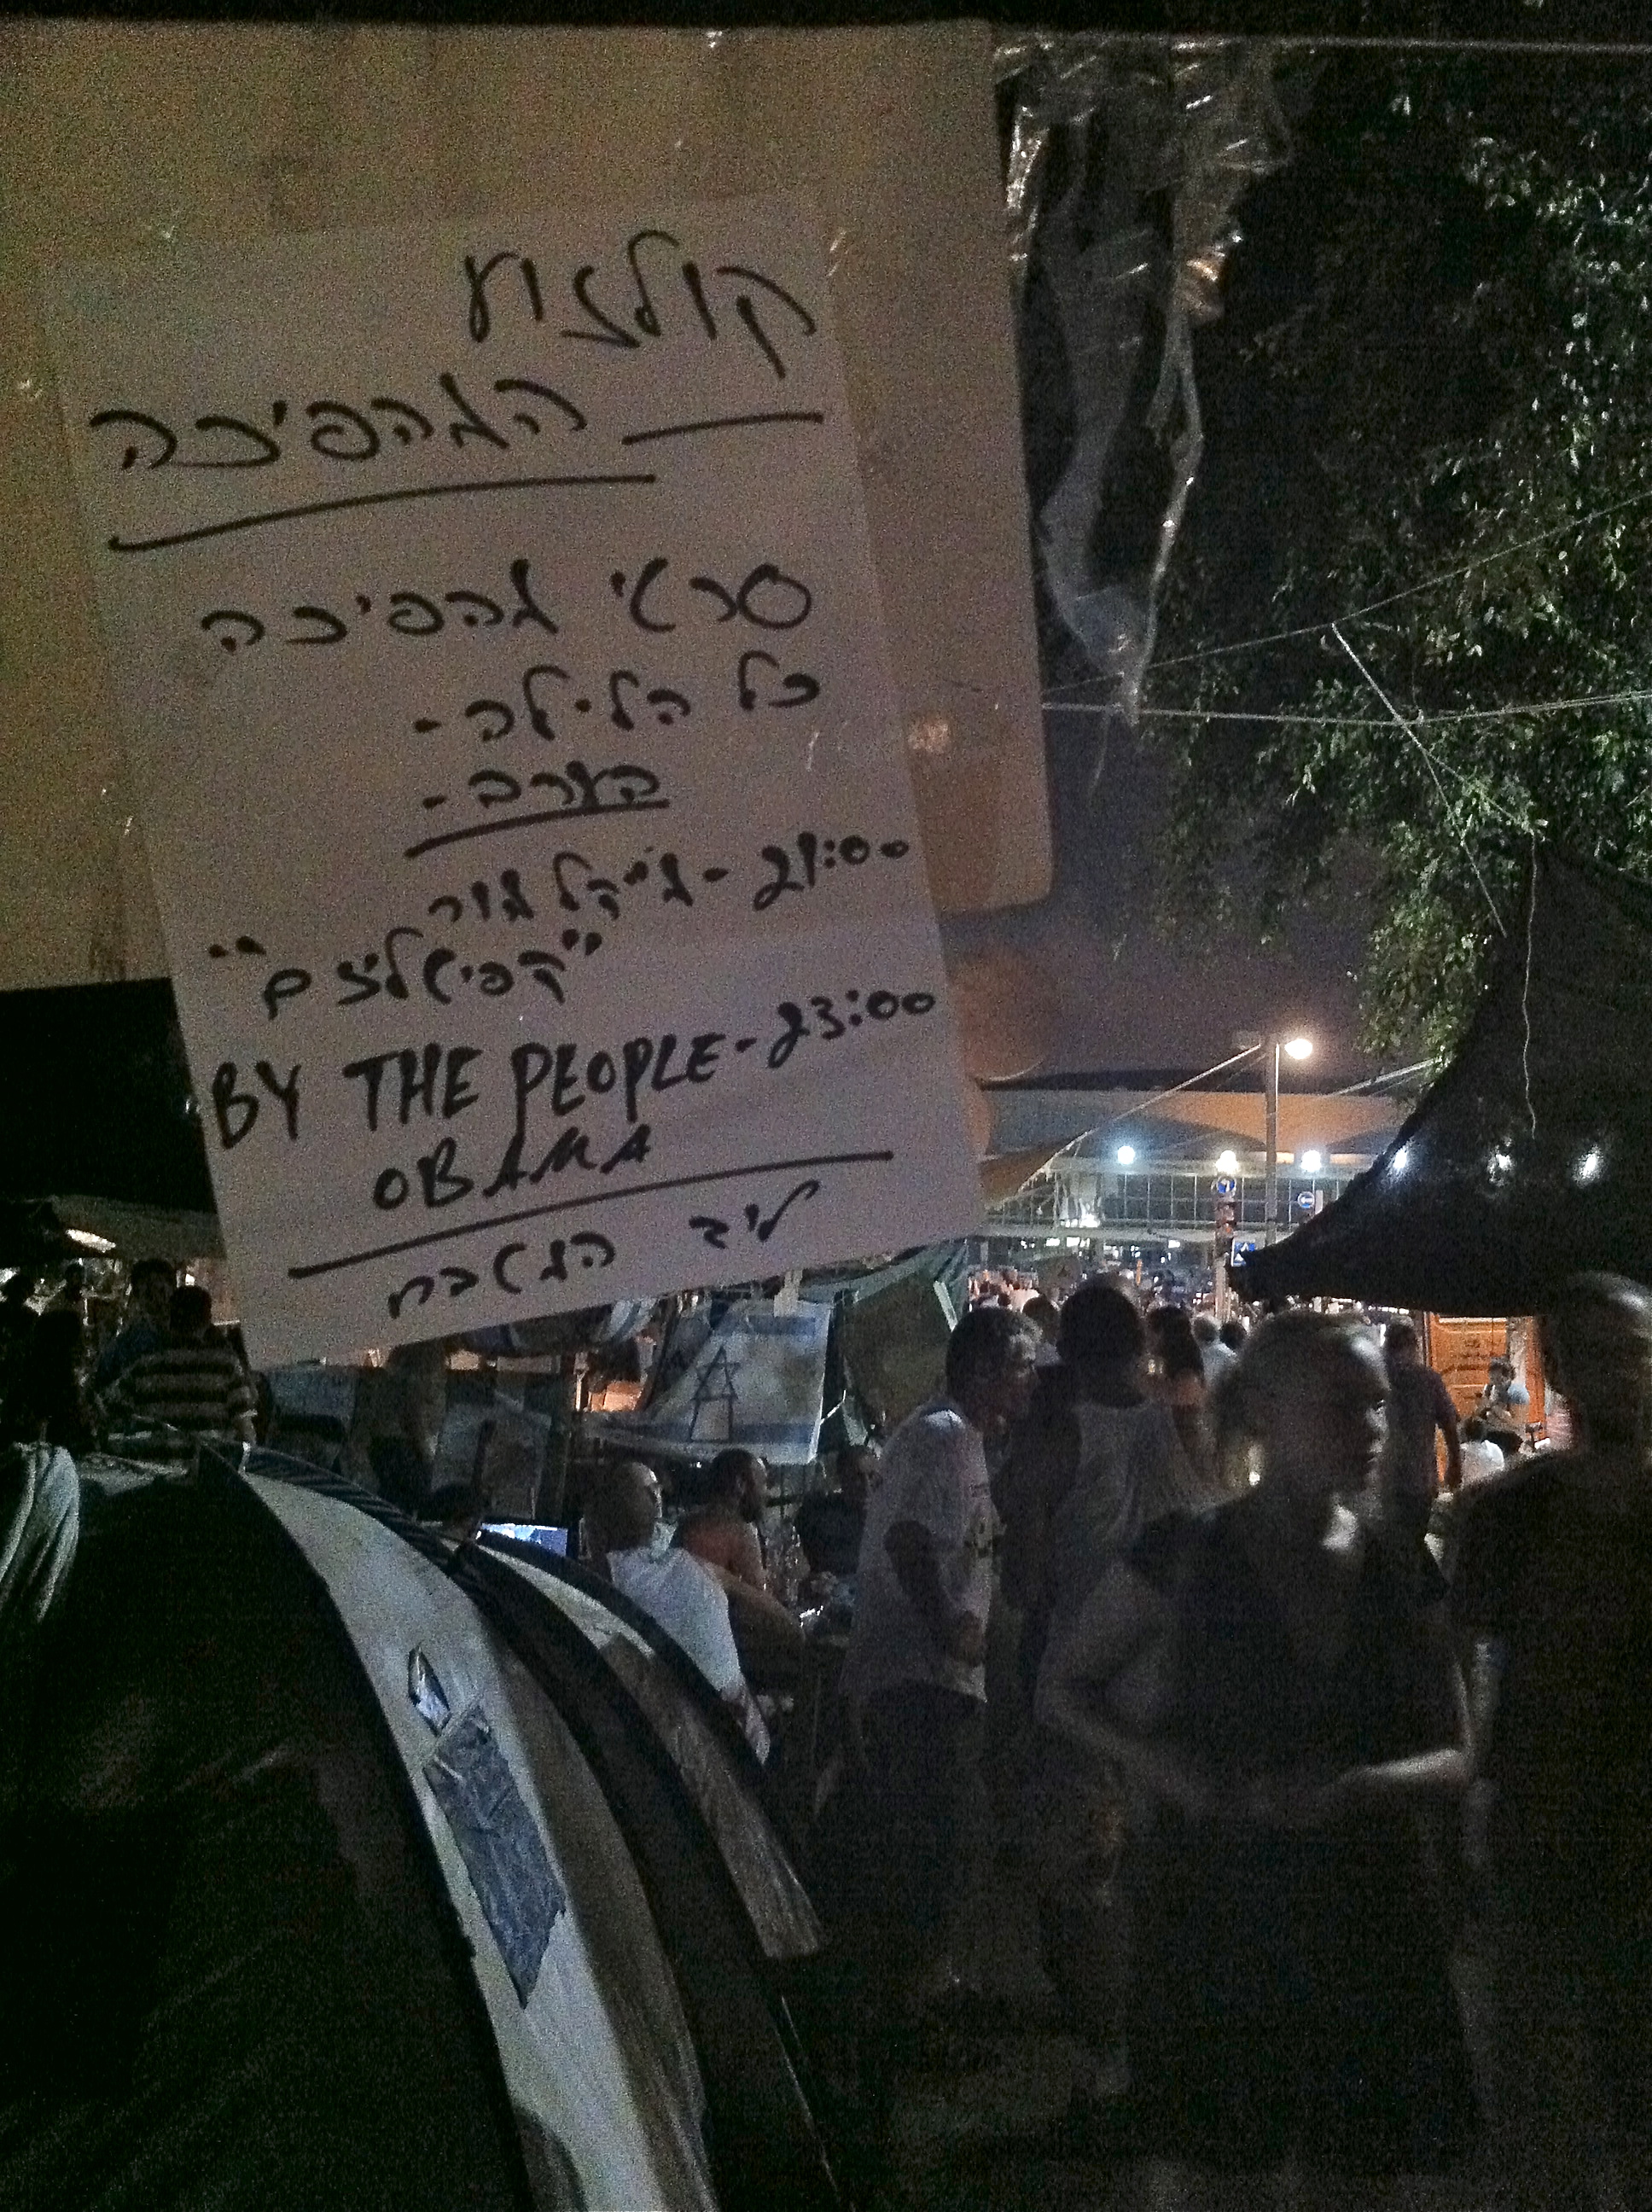 קולנוע
המהפיכה
סרטי מהפיכה
כל הלילה -
הערב -
21:00 - מייקל מור
"קפיטליזם"
23:00 - BY THE PEOPLE
OBAMA
ליד המטבח